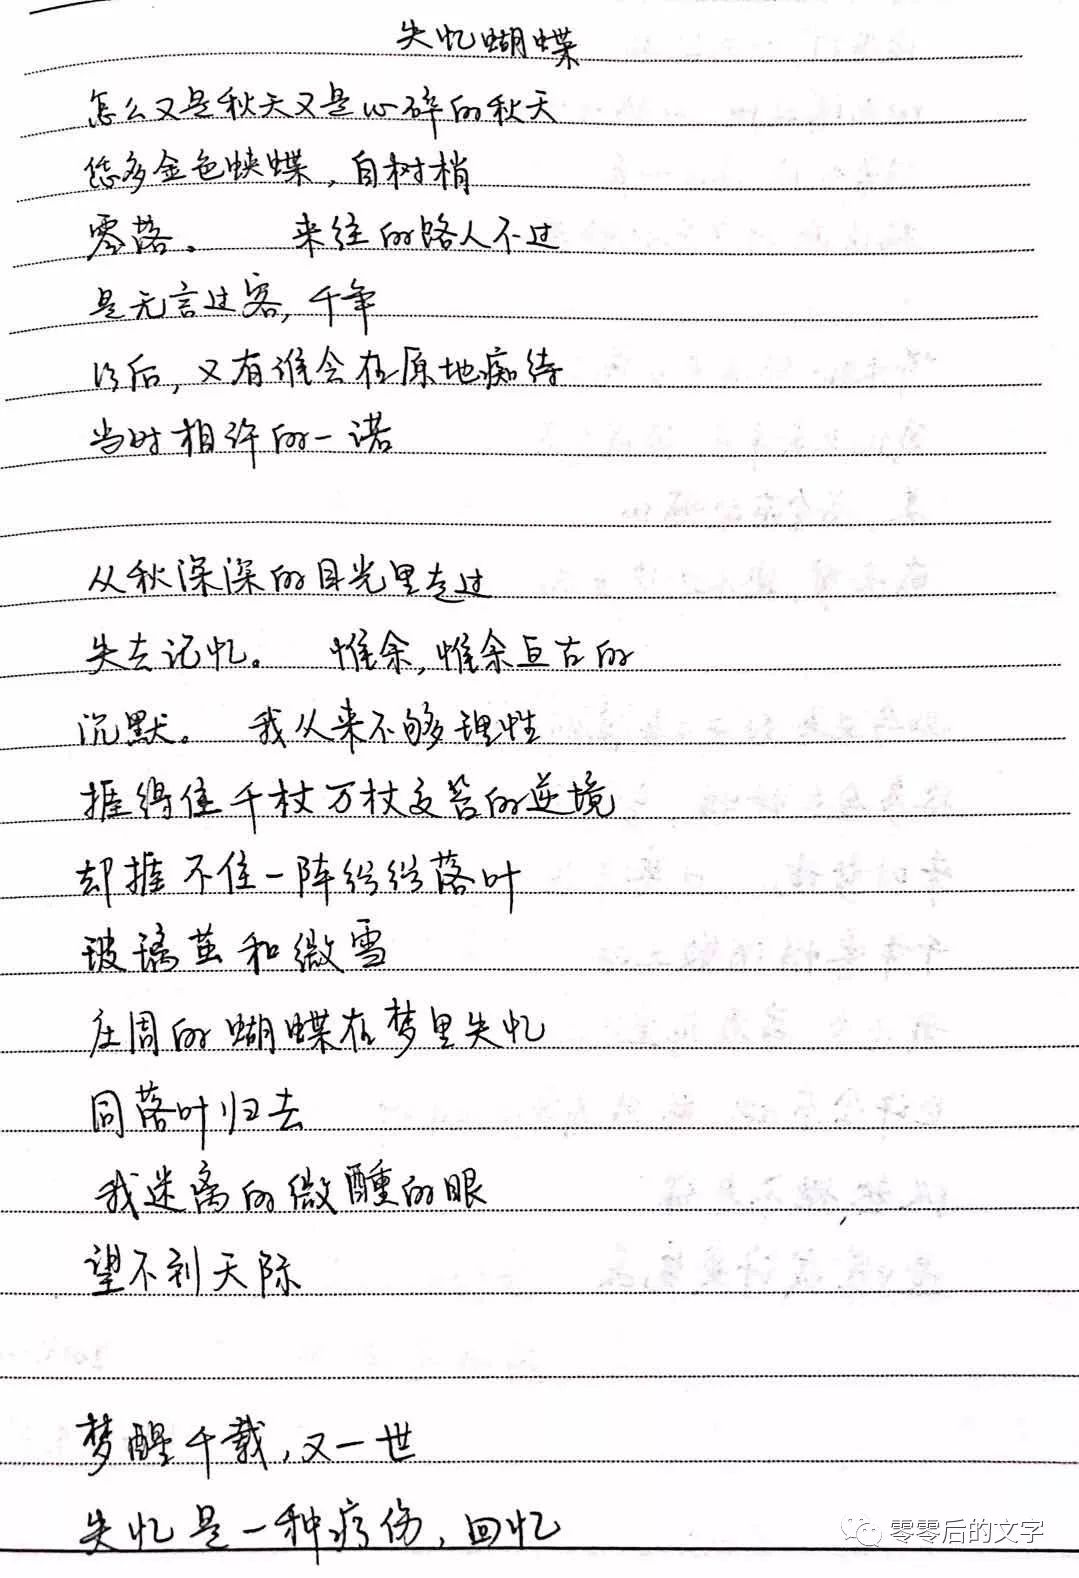 失忆蝴蝶
怎么又是秋天又是心碎的秋天
恁多金色蛱蝶，自树梢
零落。 来往的路人不过
是无言过客，千年
以后，又有谁会在原地痴待
当时相许的一诺
从秋深深的目光里走过
失去记忆。 惟余，惟余亘古的
沉默。 我从来不够理性
捱得住千杖万杖交笞的逆境
却捱不住一阵纷纷落叶
玻璃茧和微雪
庄周的蝴蝶在梦里失忆
同落叶归去
我迷离的微醺的眼
望不到天际
梦醒千载，又一世
失忆是一种疗伤，回忆
零零后的文字